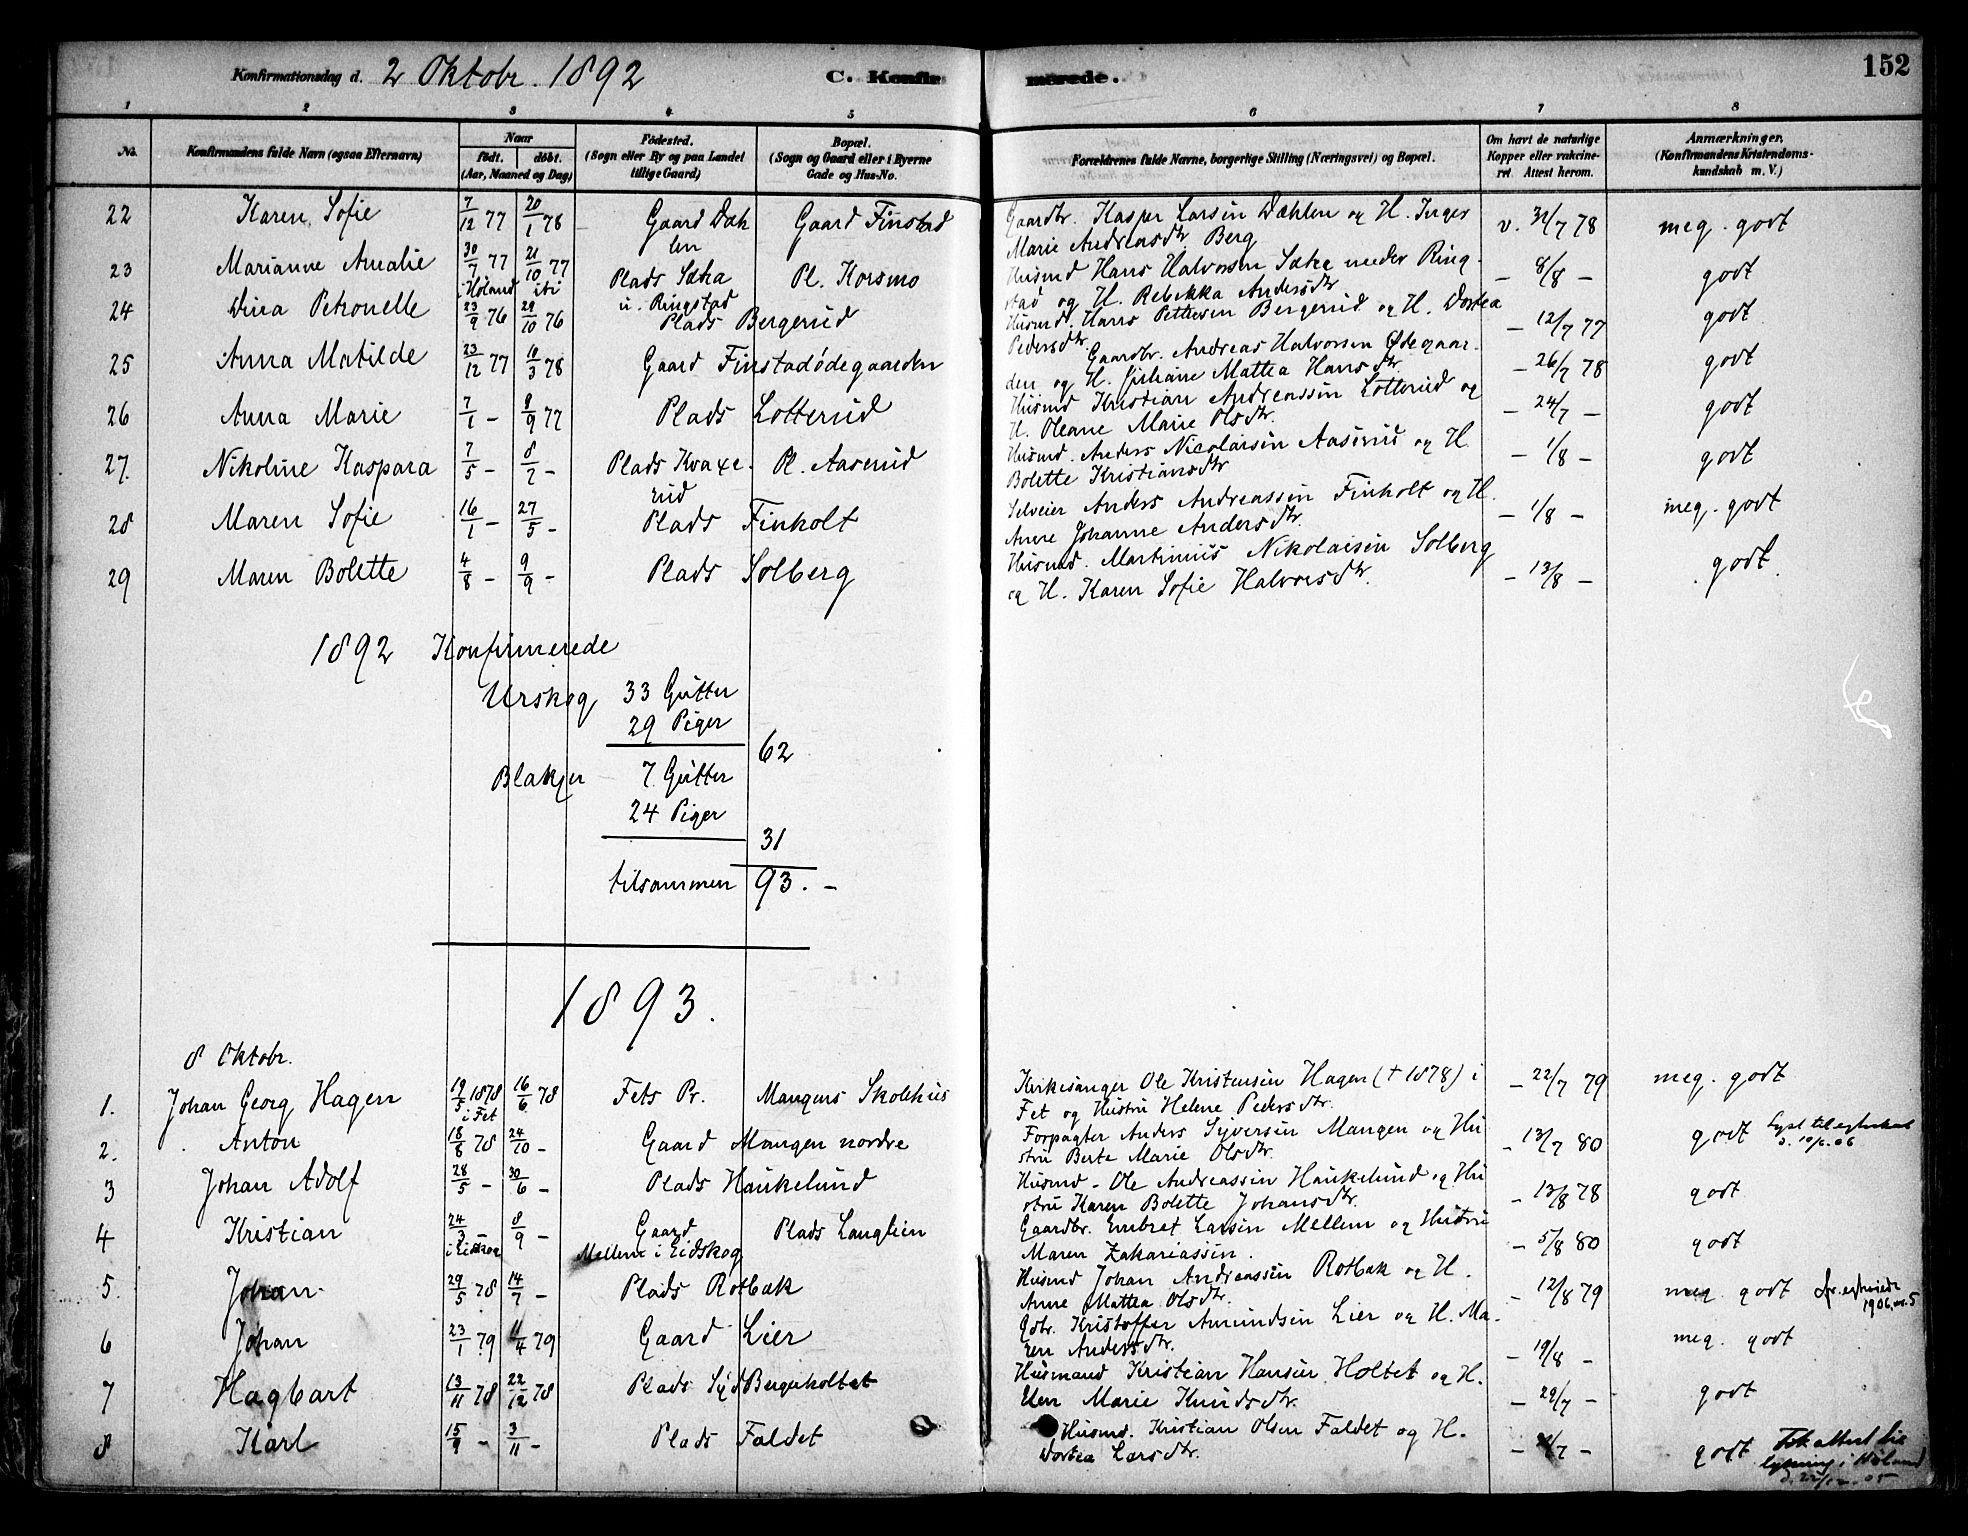 Konfirmationsdag d. 2 Oktobr. 1892 C. Konfirmerede. 152
1 2 3 4 5 6 7 8
No. Konfirmandens fulde Navn (ogsaa Efternavn) Naar født. døbt. (Aar, Maaned og Dag) Fødested. (Sogn eller By og paa Landet tillige Gaard) Bopæl. (Sogn og Gaard eller i Byerne Gade og Hus-No. Forældrenes fulde Navne, borgerlige Stilling (Næringsvei) og Bopæl. Om havt de naturlige Kopper eller vakcineret. Attest herom. Anmærkninger. (Konfirmandens Kristendomskundskab m. V.)
22 Karen Sofie 7/12 77 20/1 78 Gaard Dæhlen Gaard Finstad Gaardbr. Kasper Larsen Dæhlen og H. Inger
Marie Andreasdtr Berg v. 31/7 78 meg. godt
23 Marianne Amalie 30/7 77 i Høland 21/10 77 iti Plads Sæha u. Ringstad Pl. Korsmo Husmd Hans Halvorsen Sæha under Ring-
stad og H. Rebekka Andersdtr – 8/8 – godt
24 Dina Petronelle 23/9 76 29/10 76 Plads Bergerud Husmd. Hans Pettersen Bergerud og H. Dortea
Pedersdtr. – 12/7 77 godt
25 Anna Matilde 23/12 77 10/3 78 Gaard Finstadødegaarden Gaardbr. Andreas Halvorsen Ødegaar-
den og H. Juliane Mattea Hansdtr. – 26/7 78 godt
26 Anna Marie 7/1 – 9/9 77 Plads Lotterud Husmd Kristian Andreassen Lotterud og
H. Oleane Marie Olsdtr. – 24/7 – godt
27. Nikoline Kaspara 7/5 – 8/7 – Plads Kvaxerud Pl. Aaserud Husmd. Anders Nicolaisen Aaserud og H
Bolette Kristiansdtr – 1/8 – godt
28 Maren Sofie 16/1 – 27/5 – Plads Finholt Selveier Anders Andreassen Finholt og H.
Anne Johanne Andersdtr. – 1/8 – meg. godt
29 Maren Bolette 4/8 – 9/9 – Plads Solberg Husmd. Martinius Nikolaisen Solberg
og H. Karen Sofie Halvorsdtr. – 13/8 – godt.
1892 Konfirmerede
Urskog 33 Gutter
29 Piger
62
Blakjer 7 Gutter
24 Piger
31
tilsammen 93. –
1893.
8 Oktobr.
1. Johan Georg Hagen 19/5 1878 i Fet 16/6 78 Fets Pr. Mangens Skolehus Kirkesanger Ole Kristensen Hagen († 1878) i
Fet og Hustru Helene Pedersdtr. – 22/7 79 meg. godt
2. Anton 18/8 78 24/10 – Gaard Mangen nordre Forpagter Anders Syversen Mangen og Hu
stru Berte Marie Olsdtr. – 13/7 80 godt Lyst til egteskab d. 10/6. 06
3 Johan Adolf 28/5 – 30/6 – Plads Haukelund Husmd – Ole Andreassen Haukelund og Hu
stru Karen Bolette Johansdtr. – 13/8 78 godt
4 Kristian 24/3 – i Eidskog 8/9 – Gaard Mellem i Eidskog Plads Langlien Gaardbr. Embret Larsen Mellem og Hustru
Maren Zakariassen. – 5/8 80 godt
5. Johan 29/5 78 14/7 – Plads Rotbæk Husmd Johan Andreassen Rotbæk og H.
Anne Mattea Olsdtr. – 12/8 79 meg. godt 1906, nr. 5
6 Johan 23/1 79 11/4 79 Gaard Lier Gbr. Kristoffer Amundsen Lier og H. Ma-
ren Andersdtr. – 19/8 – meg. godt
7 Hagbart 13/11 78 22/12 78 Plads Syd Bergerholtet Husmand Kristian Hansen Holtet og H.
Elen Marie Knudsdtr. – 29/7 – godt
8 Karl 15/9 – 3/11 – Plads Faldet Husmd. Kristian Olsen Faldet og H.
Dortea Larsdtr. godt Fik attest til lysning i Høland